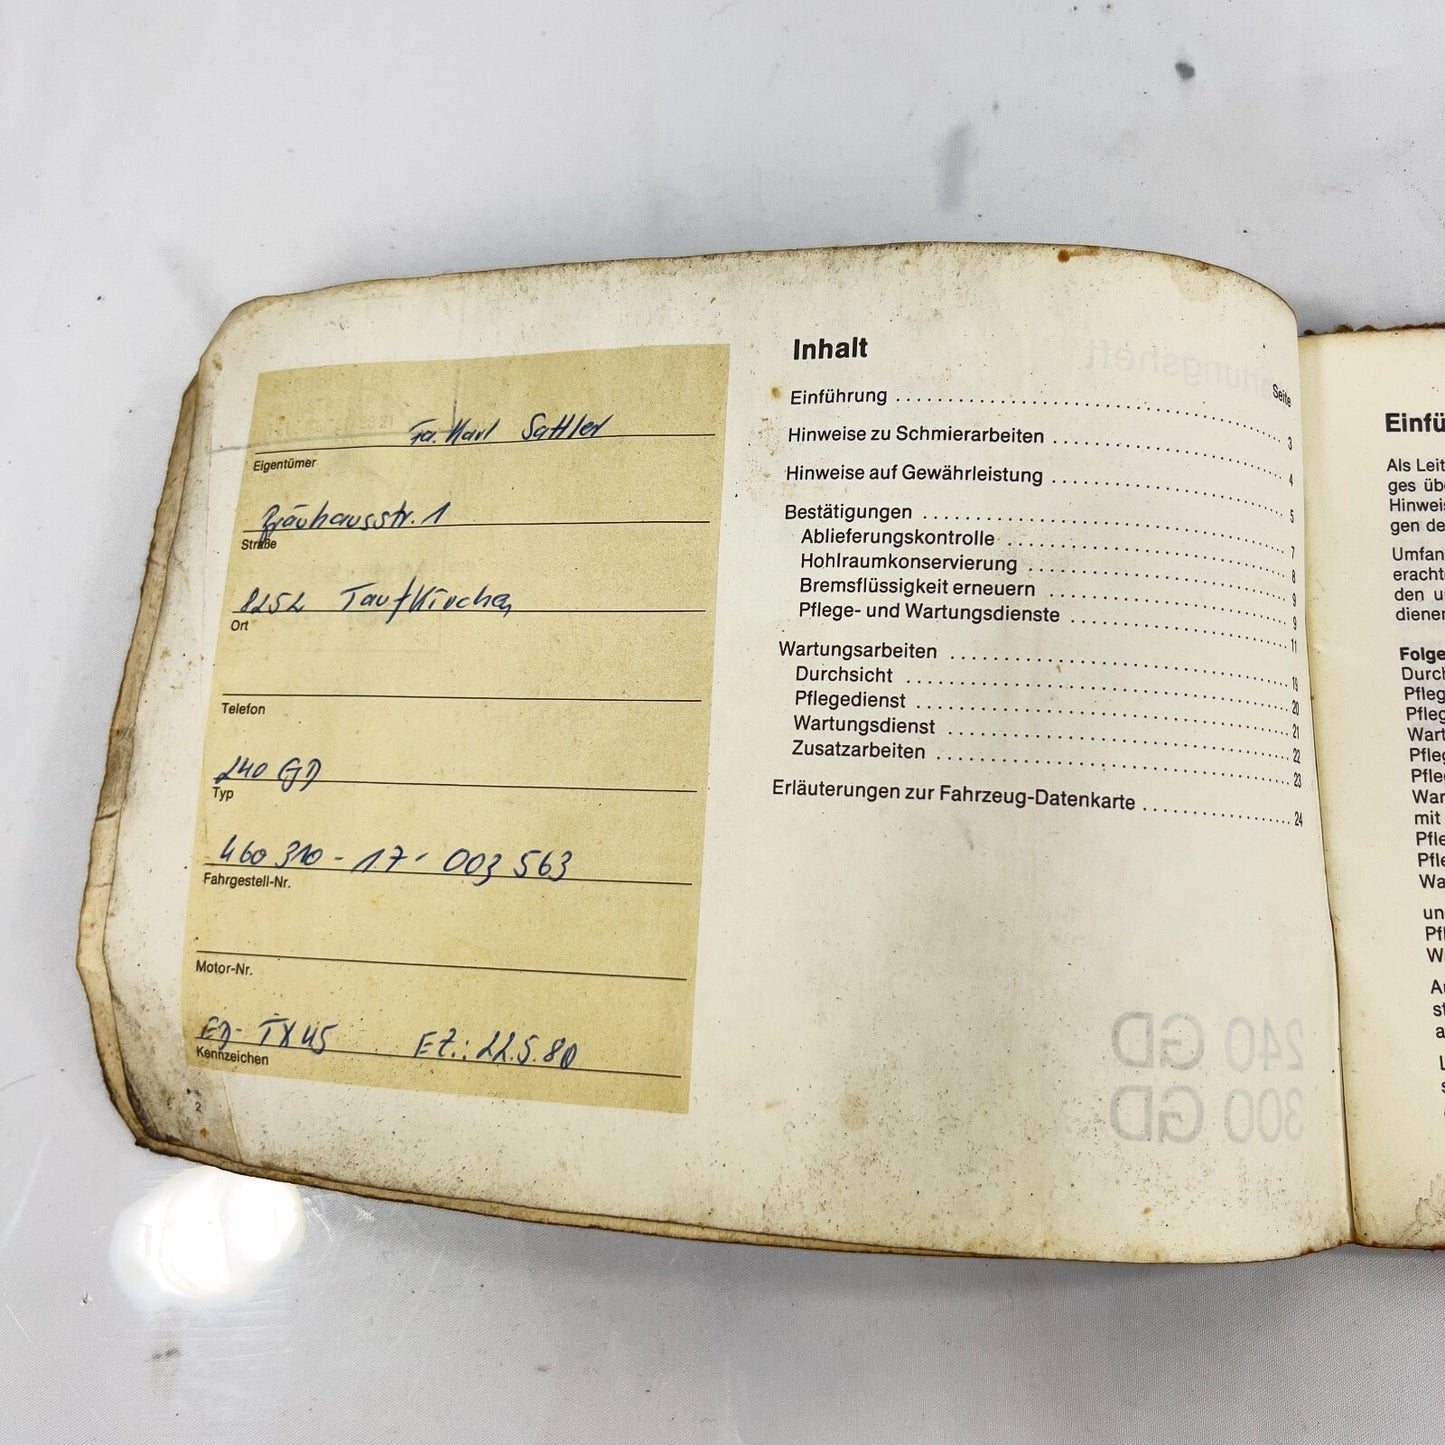 Fa. Karl Sattler
Eigentümer
Bräuhausstr. 1
Straße
8252 Taufkirchen
Ort
Telefon
240 GD
Typ
460 310 - 17 - 003 563
Fahrgestell-Nr.
Motor-Nr.
ED - TX 45 EZ.: 22.5.80
Kennzeichen
2
Inhalt
Seite
Einführung 3
Hinweise zu Schmierarbeiten 4
Hinweise auf Gewährleistung 5
Bestätigungen 7
Ablieferungskontrolle 8
Hohlraumkonservierung 9
Bremsflüssigkeit erneuern 9
Pflege- und Wartungsdienste 11
Wartungsarbeiten 19
Durchsicht 20
Pflegedienst 21
Wartungsdienst 22
Zusatzarbeiten 23
Erläuterungen zur Fahrzeug-Datenkarte 24
240 GD
300 GD
Einfü
Als Leit
ges übe
Hinweis
gen de
Umfan
eracht
den u
diener
Folge
Durch
Pfleg
Pfleg
Wart
Pfleg
Pfleg
War
mit
Pfle
Pfle
Wa
un
Pfl
W
A
st
a
L
s